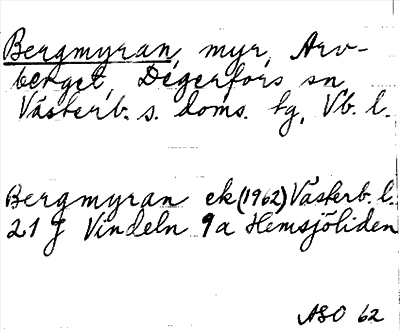 Bergmyran, myr, Arv-
berget, Degerfors sn,
Västerb. s. doms. tg, Vb. l.
Bergmyran ek (1962) Västerb. l.
21 J Vindeln 9a Hemsjöliden
ASO 62